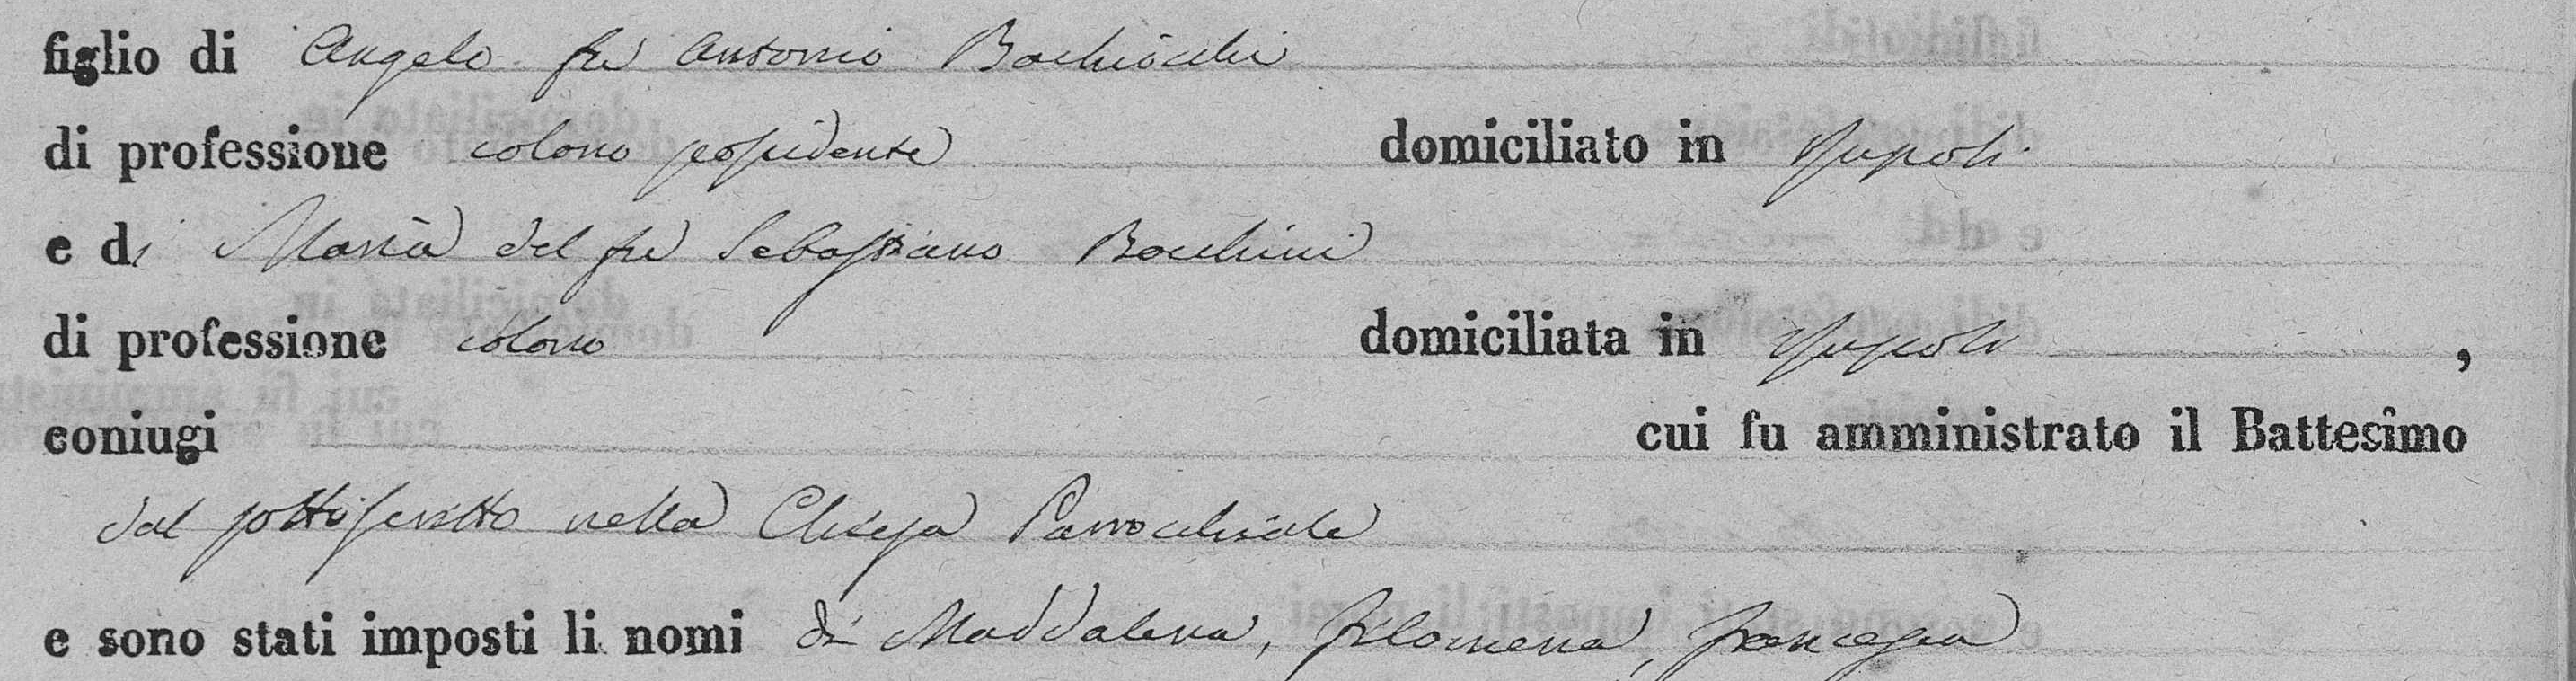 figlio di Angelo fu Antonio Bachiocchi
di professione colono possidente domiciliato in Rupoli
e di Maria del fu Sebastiano Bocchini
di professione colono domiciliata in Rupoli ,
coniugi cui fu amministrato il Battesimo
dal sottoscritto nella Chiesa Parrocchiale
e sono stati imposti li nomi di Maddalena, Filomena, Francesca